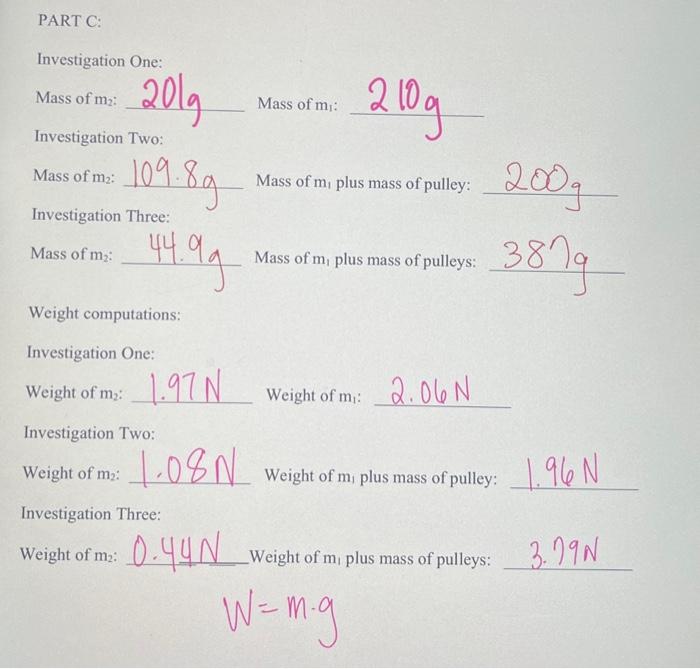 PART C:
Investigation One:
Mass of m₂: 201g Mass of m₁: 210g
Investigation Two:
Mass of m₂: 109.8g Mass of m₁ plus mass of pulley: 200g
Investigation Three:
Mass of m₂: 44.9g Mass of m₁ plus mass of pulleys: 387g
Weight computations:
Investigation One:
Weight of m₂: 1.97N Weight of m₁: 2.06N
Investigation Two:
Weight of m₂: 1.08N Weight of m₁ plus mass of pulley: 1.96N
Investigation Three:
Weight of m₂: 0.44N Weight of m₁ plus mass of pulleys: 3.79N
W=m·g